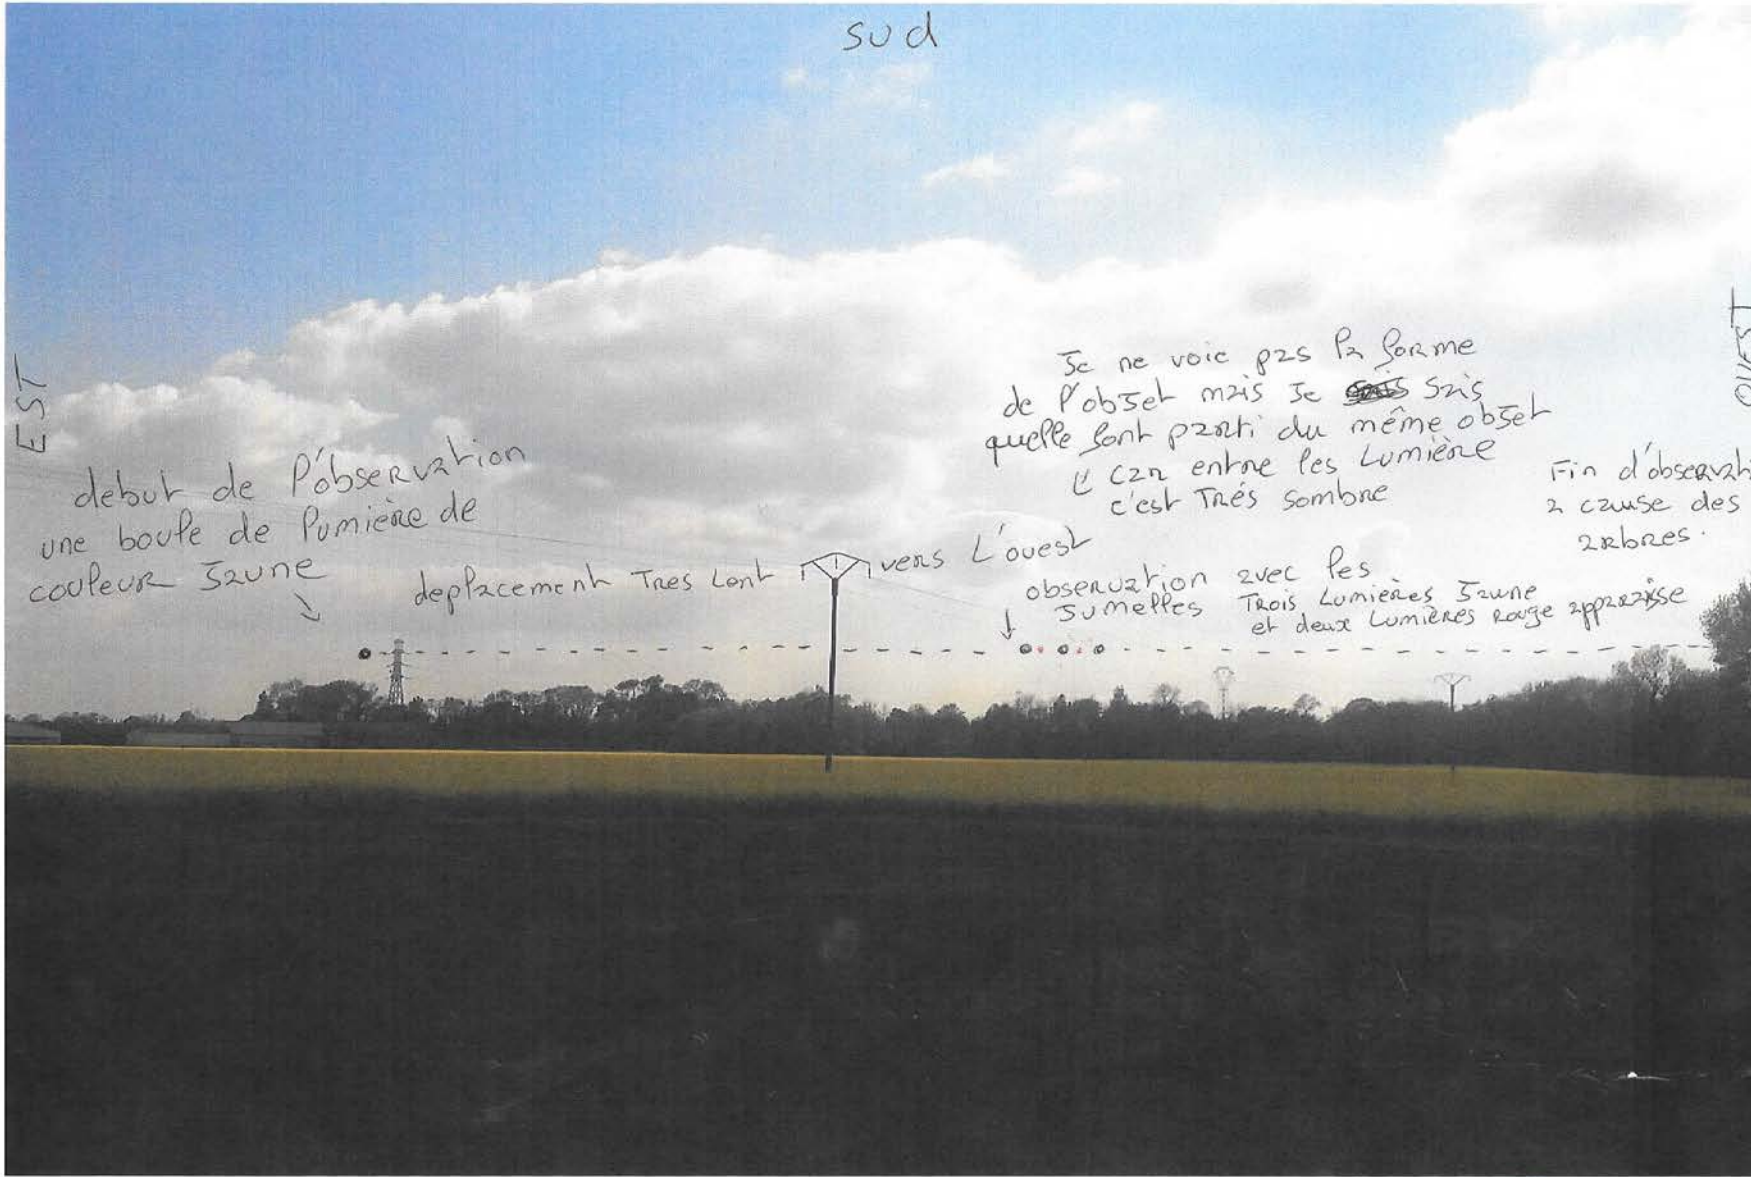 sud
EST
OUEST
debut de l'observation
une boule de lumière de
couleur Jaune
deplacement Tres Lent vers L'ouest
Je ne voie pas la forme
de l'objet mais Je sais
quelle font parti du même objet
car entre les Lumière
c'est Trés sombre
observation avec les
Jumelles Trois Lumières Jaune
et deux Lumières rouge apparaisse
Fin d'observati
a cause des
arbres.